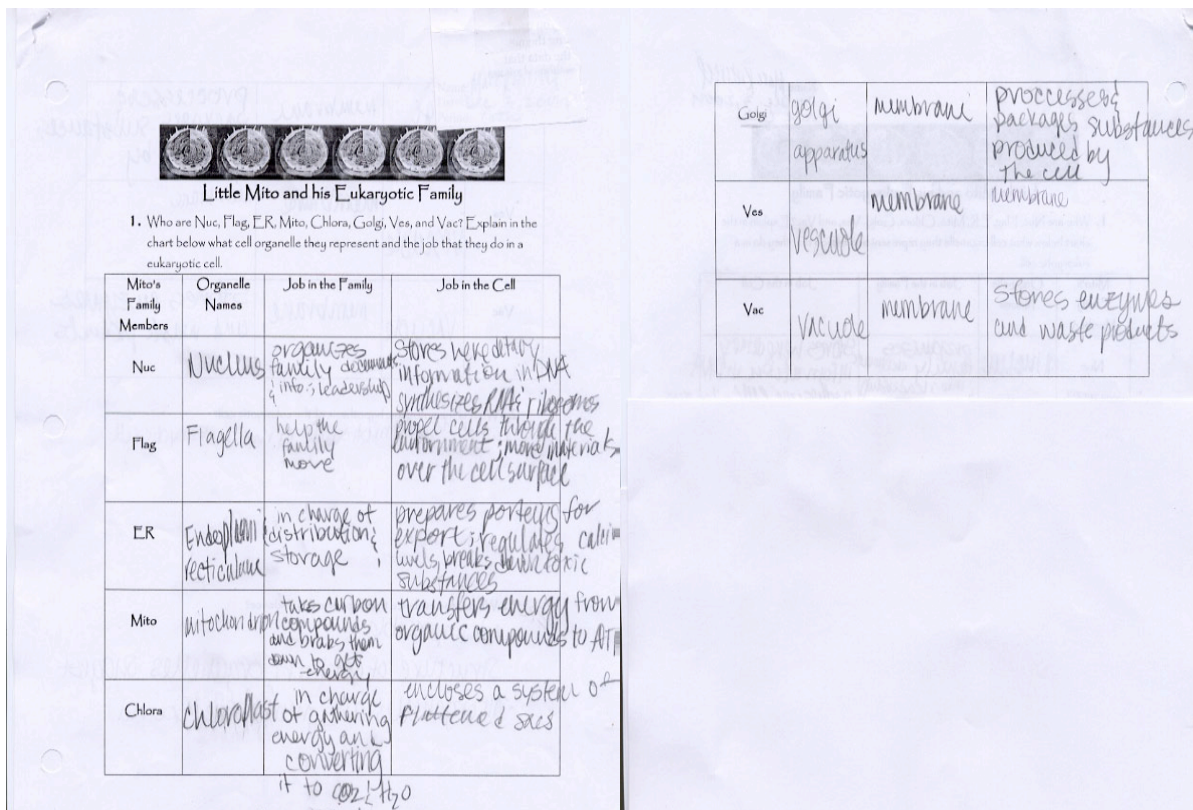 Little Mito and his Eukaryotic Family
1. Who are Nuc, Flag, ER, Mito, Chlora, Golgi, Ves, and Vac? Explain in the
chart below what cell organelle they represent and the job that they do in a
eukaryotic cell.
Mito's
Family
Members
Organelle
Names
Job in the Family
Job in the Cell
Nuc
Nucleus
organizes
family documents
& info; leadership
Stores hereditary
information in DNA
synthesizes RNA & ribosomes
Flag
Flagella
help the
family
move
propel cells through the
enviornment; move materials
over the cell surface
ER
in charge of
distribution &
storage
prepares porteins for
export; regulates calcium
levels, breaks down toxic
substances
Mito
mitochondrion
takes carbon
compounds
and braks them
down to get
energy
transfers energy from
organic compounds to ATP
Chlora
chloroplast
in charge
of gathering
energy and
converting
it to CO2 & H2O
encloses a system of
flattened sacs
Golgi
golgi
apparatus
membrane
proccesses &
packages substances
produced by
the cell
Ves
vescuole
membrane
membrane
Vac
vacuole
membrane
stores enzymes
and waste products